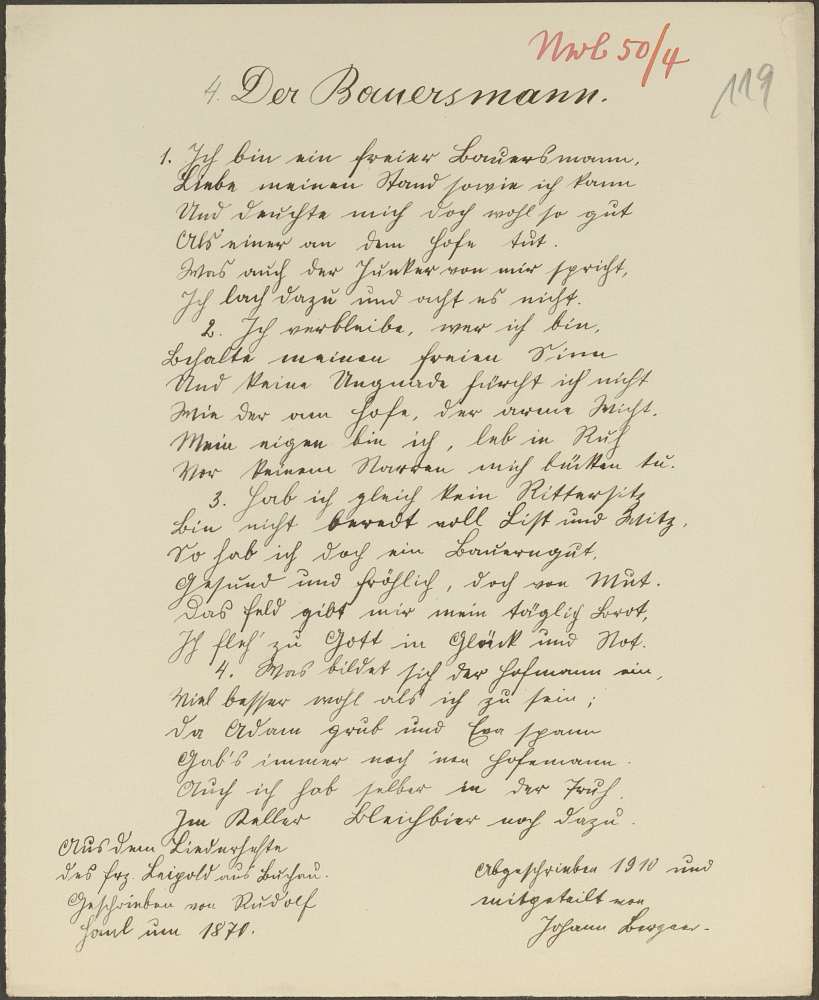 Nwb 50/4
119
4. Der Bauersmann.
1. Ich bin ein freier Bauersmann,
Liebe meinen Stand sowie ich kann
Und deuchte mich doch wohl so gut
Als einer an dem Hofe tut.
Was auch der Junker von mir spricht,
Ich lach dazu und acht es nicht.
2. Ich verbleibe, wer ich bin,
Behalte meinen freien Sinn
Und keine Ungnade fürcht ich nicht
Wie der am Hofe, der arme Wicht.
Mein eigen bin ich, leb in Ruh
Vor keinem Narren mich bücken tu.
3. Hab ich gleich kein Rittersitz
Bin nicht beredt voll List und Witz,
So hab ich doch ein Bauerngut,
Gesund und fröhlich, doch von Mut.
Das Feld gibt mir mein täglich Brot,
Ich fleh' zu Gott in Glück und Not.
4. Was bildet sich der Hofmann ein,
Viel besser wohl als ich zu sein;
Da Adam grub und Eva spann
Gab's immer noch 'nen Hofemann.
Auch ich hab selber in der Truh
Im Keller Bleichbier noch dazu.
Aus dem Liederhefte
des frz. Leipold aus Buchau.
Geschrieben von Rudolf
um 1870.
Abgeschrieben 1910 und
mitgeteilt von
Johann